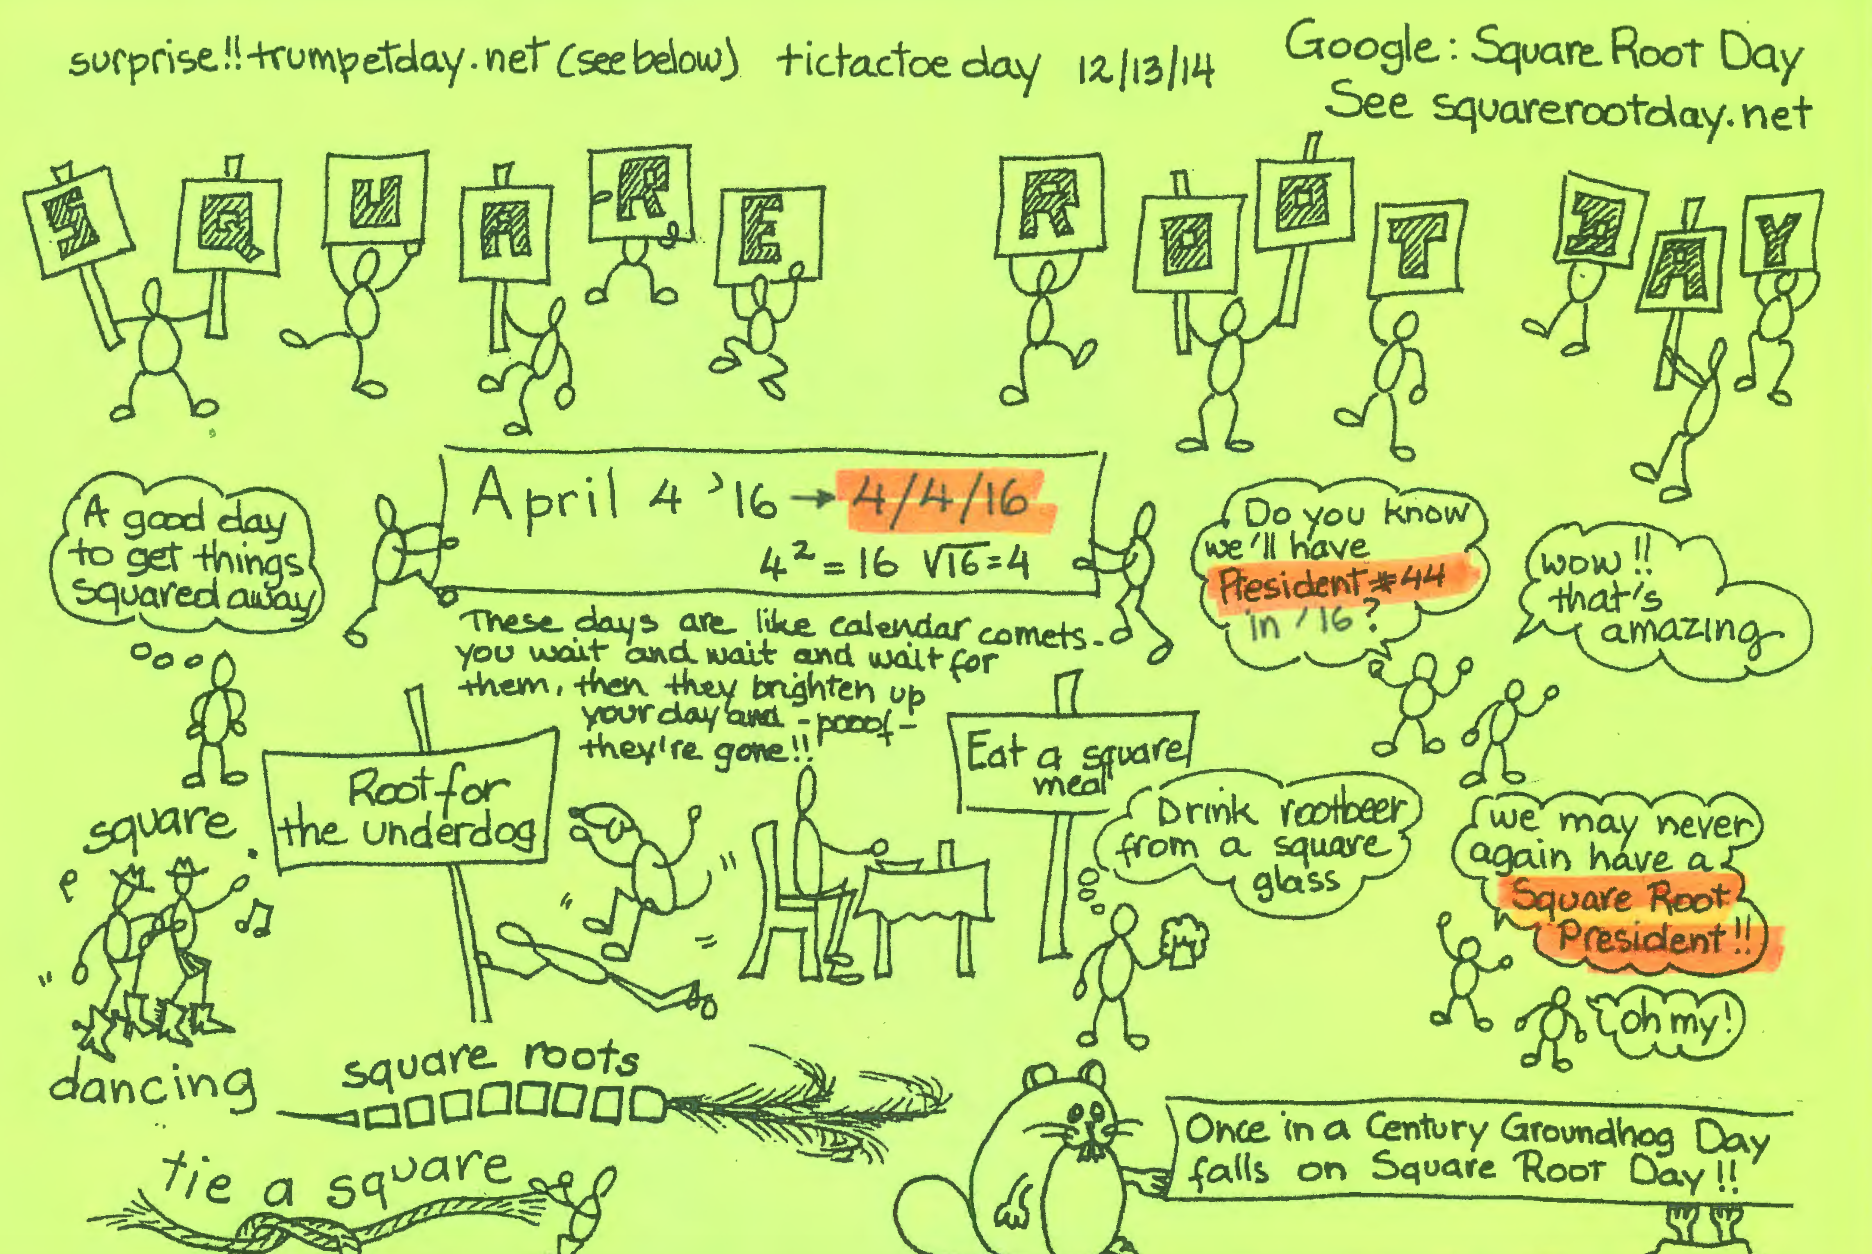 surprise!! trumpetday.net (see below) tictactoe day 12/13/14
Google: Square Root Day
See squarerootday.net
SQUARE ROOT DAY
April 4 '16 → 4/4/16
4² = 16 √16 = 4
A good day
to get things
squared away
These days are like calendar comets-
you wait and wait and wait for
them, then they brighten up
your day and - pooof -
they're gone!!
Do you know
we'll have
President #44
in '16?
wow!!
that's
amazing
Root for
the underdog
Eat a square
meal
Drink rootbeer
from a square
glass
we may never
again have a
Square Root
President!!
oh my!
square
dancing
square roots
tie a square
Once in a Century Groundhog Day
falls on Square Root Day!!